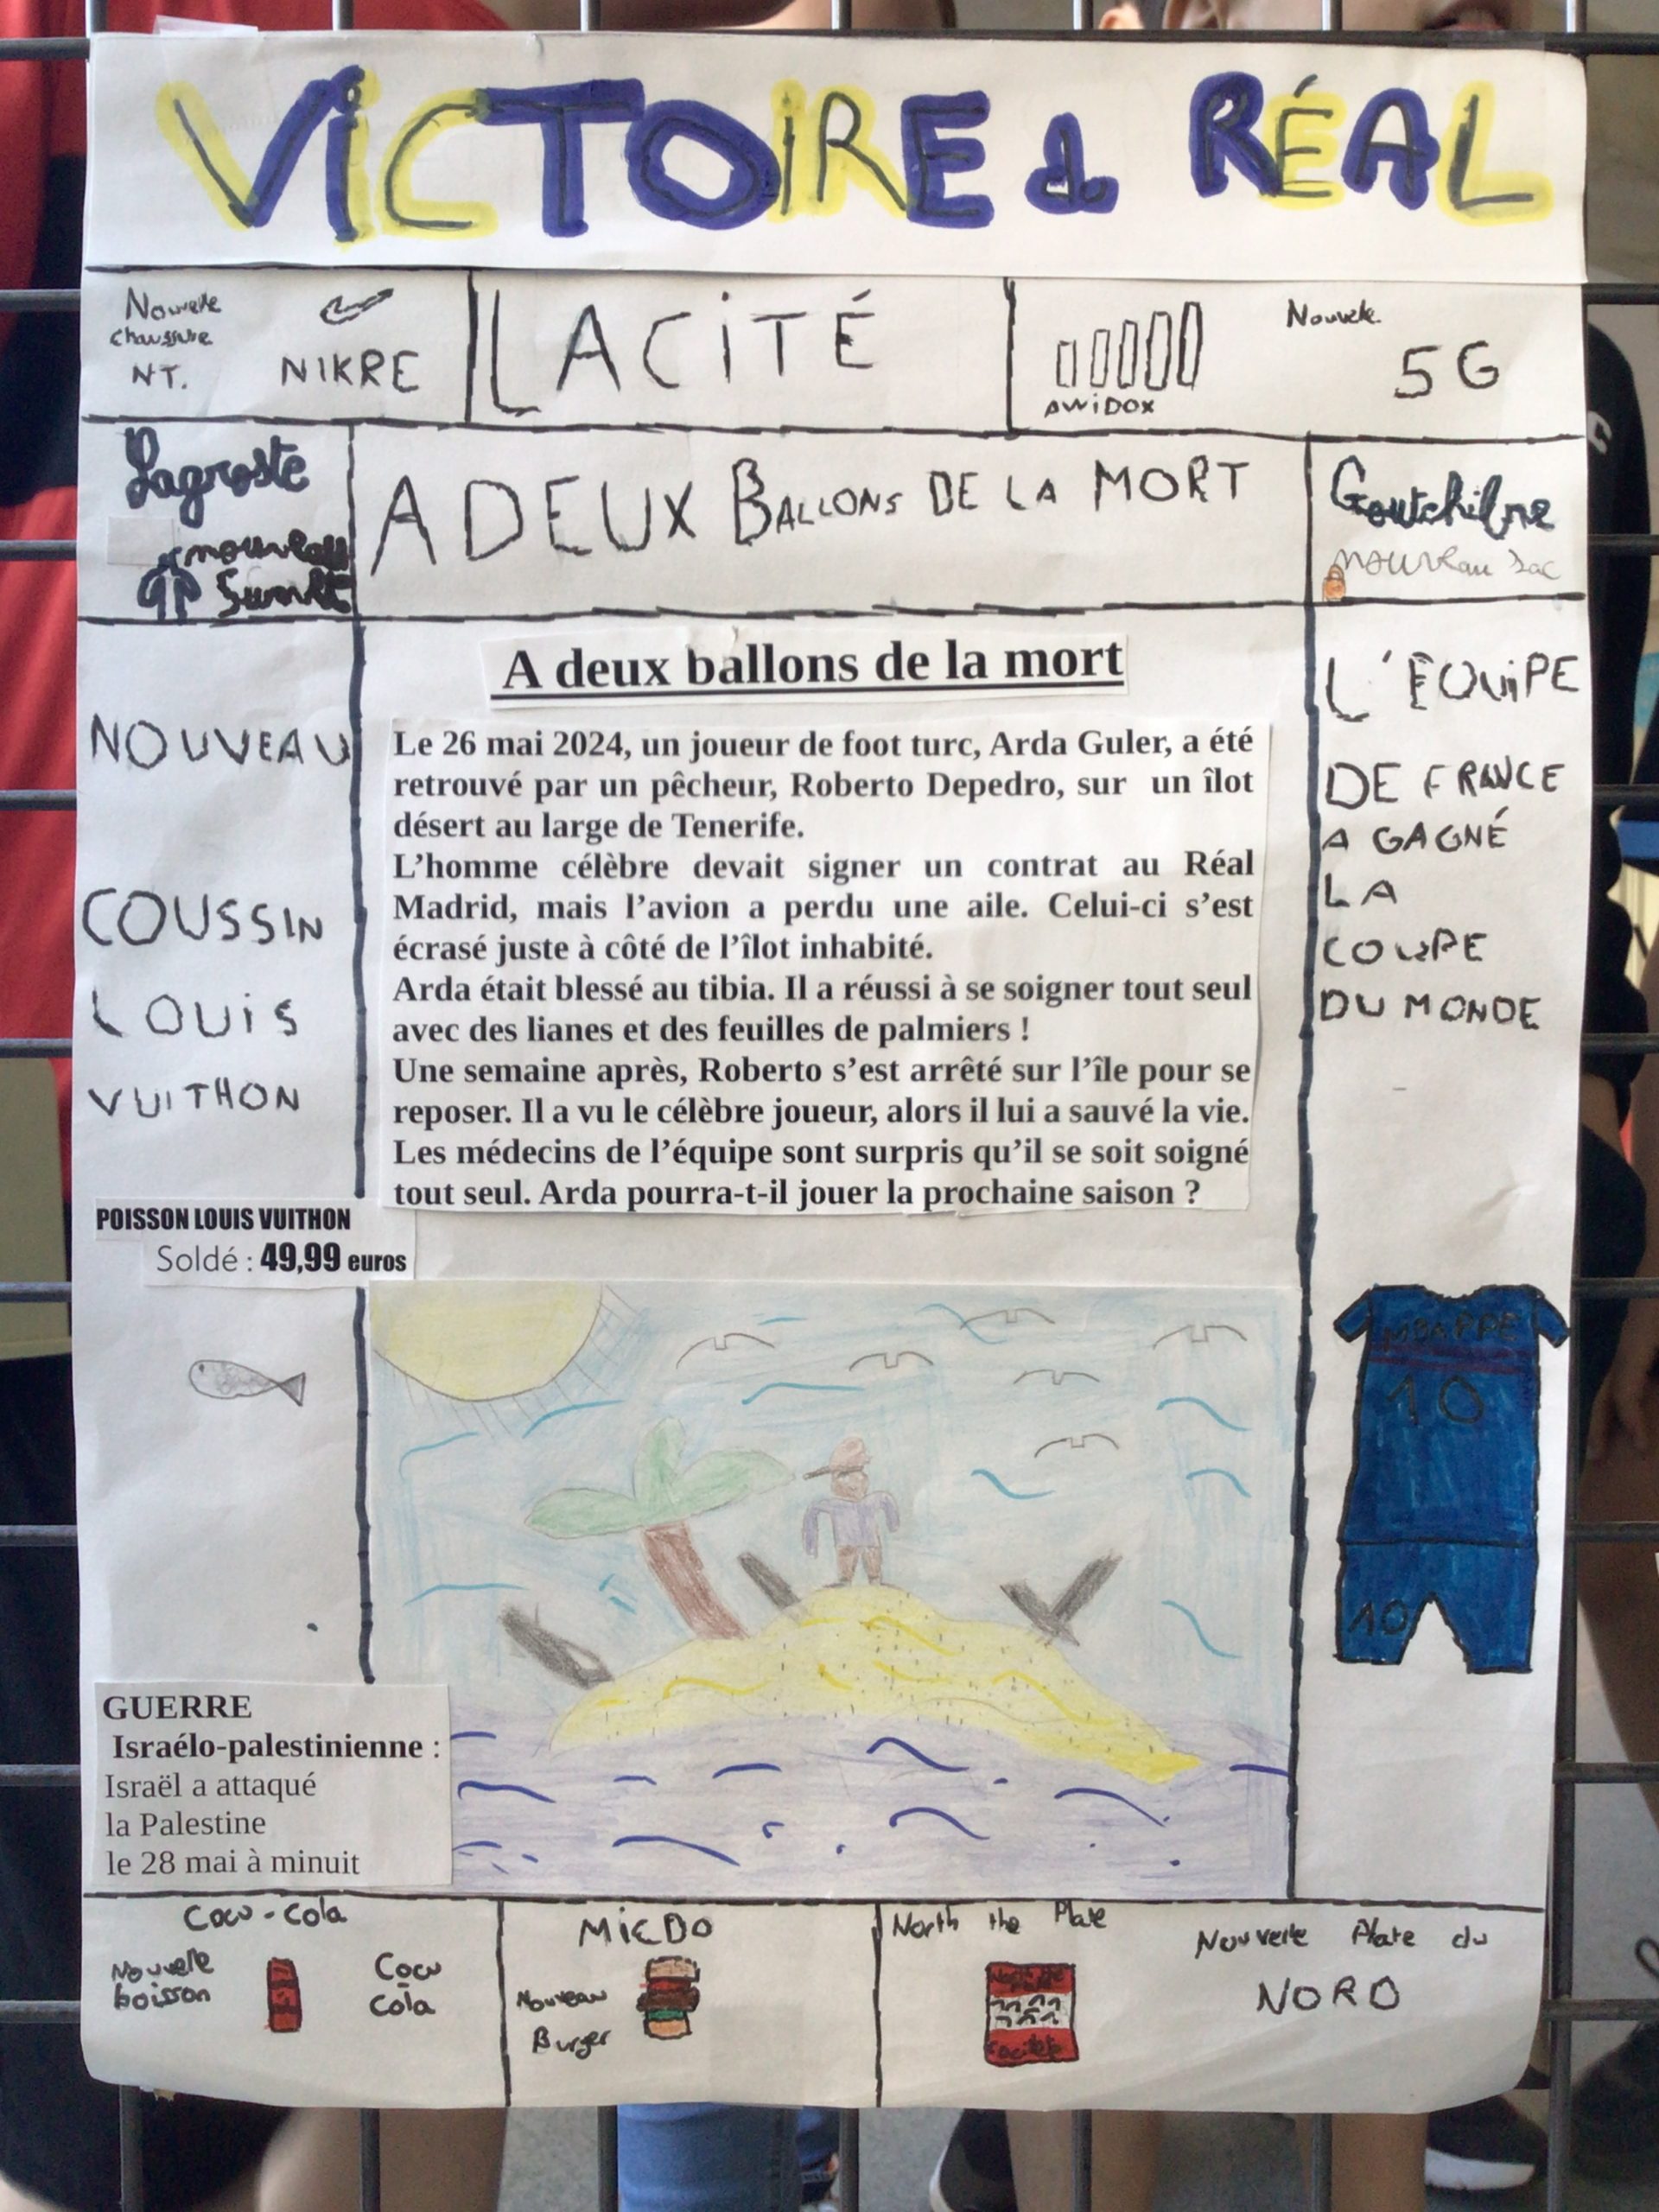 VICTOIRE d RÉAL
Nouvelle
chaussure
NT.
NIKRE
LACITÉ
AWiDOX
Nouvele.
5G
Lagroste
nouveau
A DEUX BALLONS DE LA MORT
Goutchilne
nouveau sac
NOUVEAU
COUSSIN
LOUIS
VUITHON
POISSON LOUIS VUITHON
Soldé : 49,99 euros
GUERRE
Israélo-palestinienne :
Israël a attaqué
la Palestine
le 28 mai à minuit
A deux ballons de la mort
Le 26 mai 2024, un joueur de foot turc, Arda Guler, a été
retrouvé par un pêcheur, Roberto Depedro, sur un îlot
désert au large de Tenerife.
L’homme célèbre devait signer un contrat au Réal
Madrid, mais l’avion a perdu une aile. Celui-ci s’est
écrasé juste à côté de l’îlot inhabité.
Arda était blessé au tibia. Il a réussi à se soigner tout seul
avec des lianes et des feuilles de palmiers !
Une semaine après, Roberto s’est arrêté sur l’île pour se
reposer. Il a vu le célèbre joueur, alors il lui a sauvé la vie.
Les médecins de l’équipe sont surpris qu’il se soit soigné
tout seul. Arda pourra-t-il jouer la prochaine saison ?
L'ÉQUIPE
DE FRANCE
A GAGNÉ
LA
COUPE
DU MONDE
MBAPPE
10
10
Cocu-Cola
Nouvelle
boisson
Cocu
Cola
MiCDO
Nouveau
Burger
North the Plate
Nouvelle Plate du
NORD